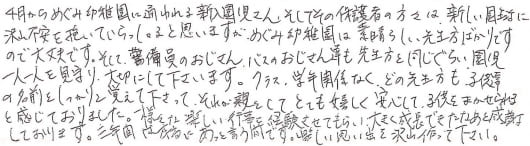 4月からめぐみ幼稚園に通われる新入園児さん、そしてその保護者の方々は、新しい園生活に
沢山不安を抱いていらっしゃると思いますが、めぐみ幼稚園は素晴らしい先生方ばかりです
ので大丈夫です。そして、警備員のおじさん、バスのおじさん達も先生方と同じぐらい、園児
一人一人を見守り、大切にして下さいます。クラス、学年関係なく、どの先生方も子供達
の名前をしっかりと覚えて下さって、それが親としてとても嬉しく、安心して、子供をまかせられる
と感じておりました。様々な楽しい行事を経験させてもらい、大きく成長できたなあと感謝
しております。三年間は本当にあっと言う間です。楽しい思い出を沢山作って下さい。